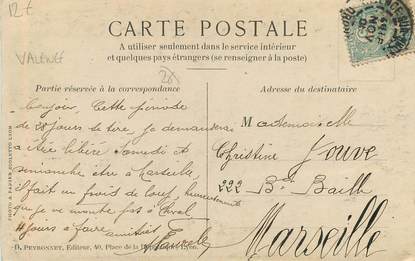 12 €
VALENCE
CARTE POSTALE
A utiliser seulement dans le service intérieur
et quelques pays étrangers (se renseigner à la poste)
Partie réservée à la correspondance
Adresse du destinataire
Bonjour, Cette période
de 28 jours se tire, je demanderai
a être libéré Samedi et
dimanche être à Marseille
il fait un froid de loup, heureusement
que je ne monte pas à cheval
11 jours à faire amitiés
Mademoiselle
Christine
Jouve
222 Bd Baille
Marseille
PHOTO & PAPIER GUILLEMINOT LYON
D. PEYRONNET, Editeur, 40, Place de la